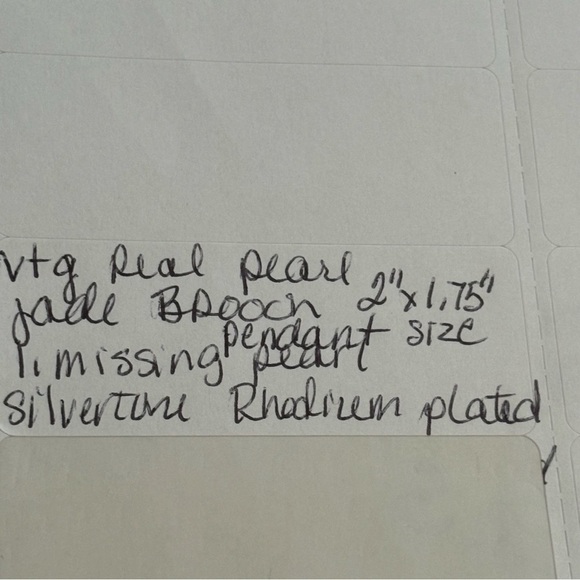 vtg Real pearl
jade Brooch 2"x1.75"
pendant size
1. missing pearl
Silvertone Rhodium plated